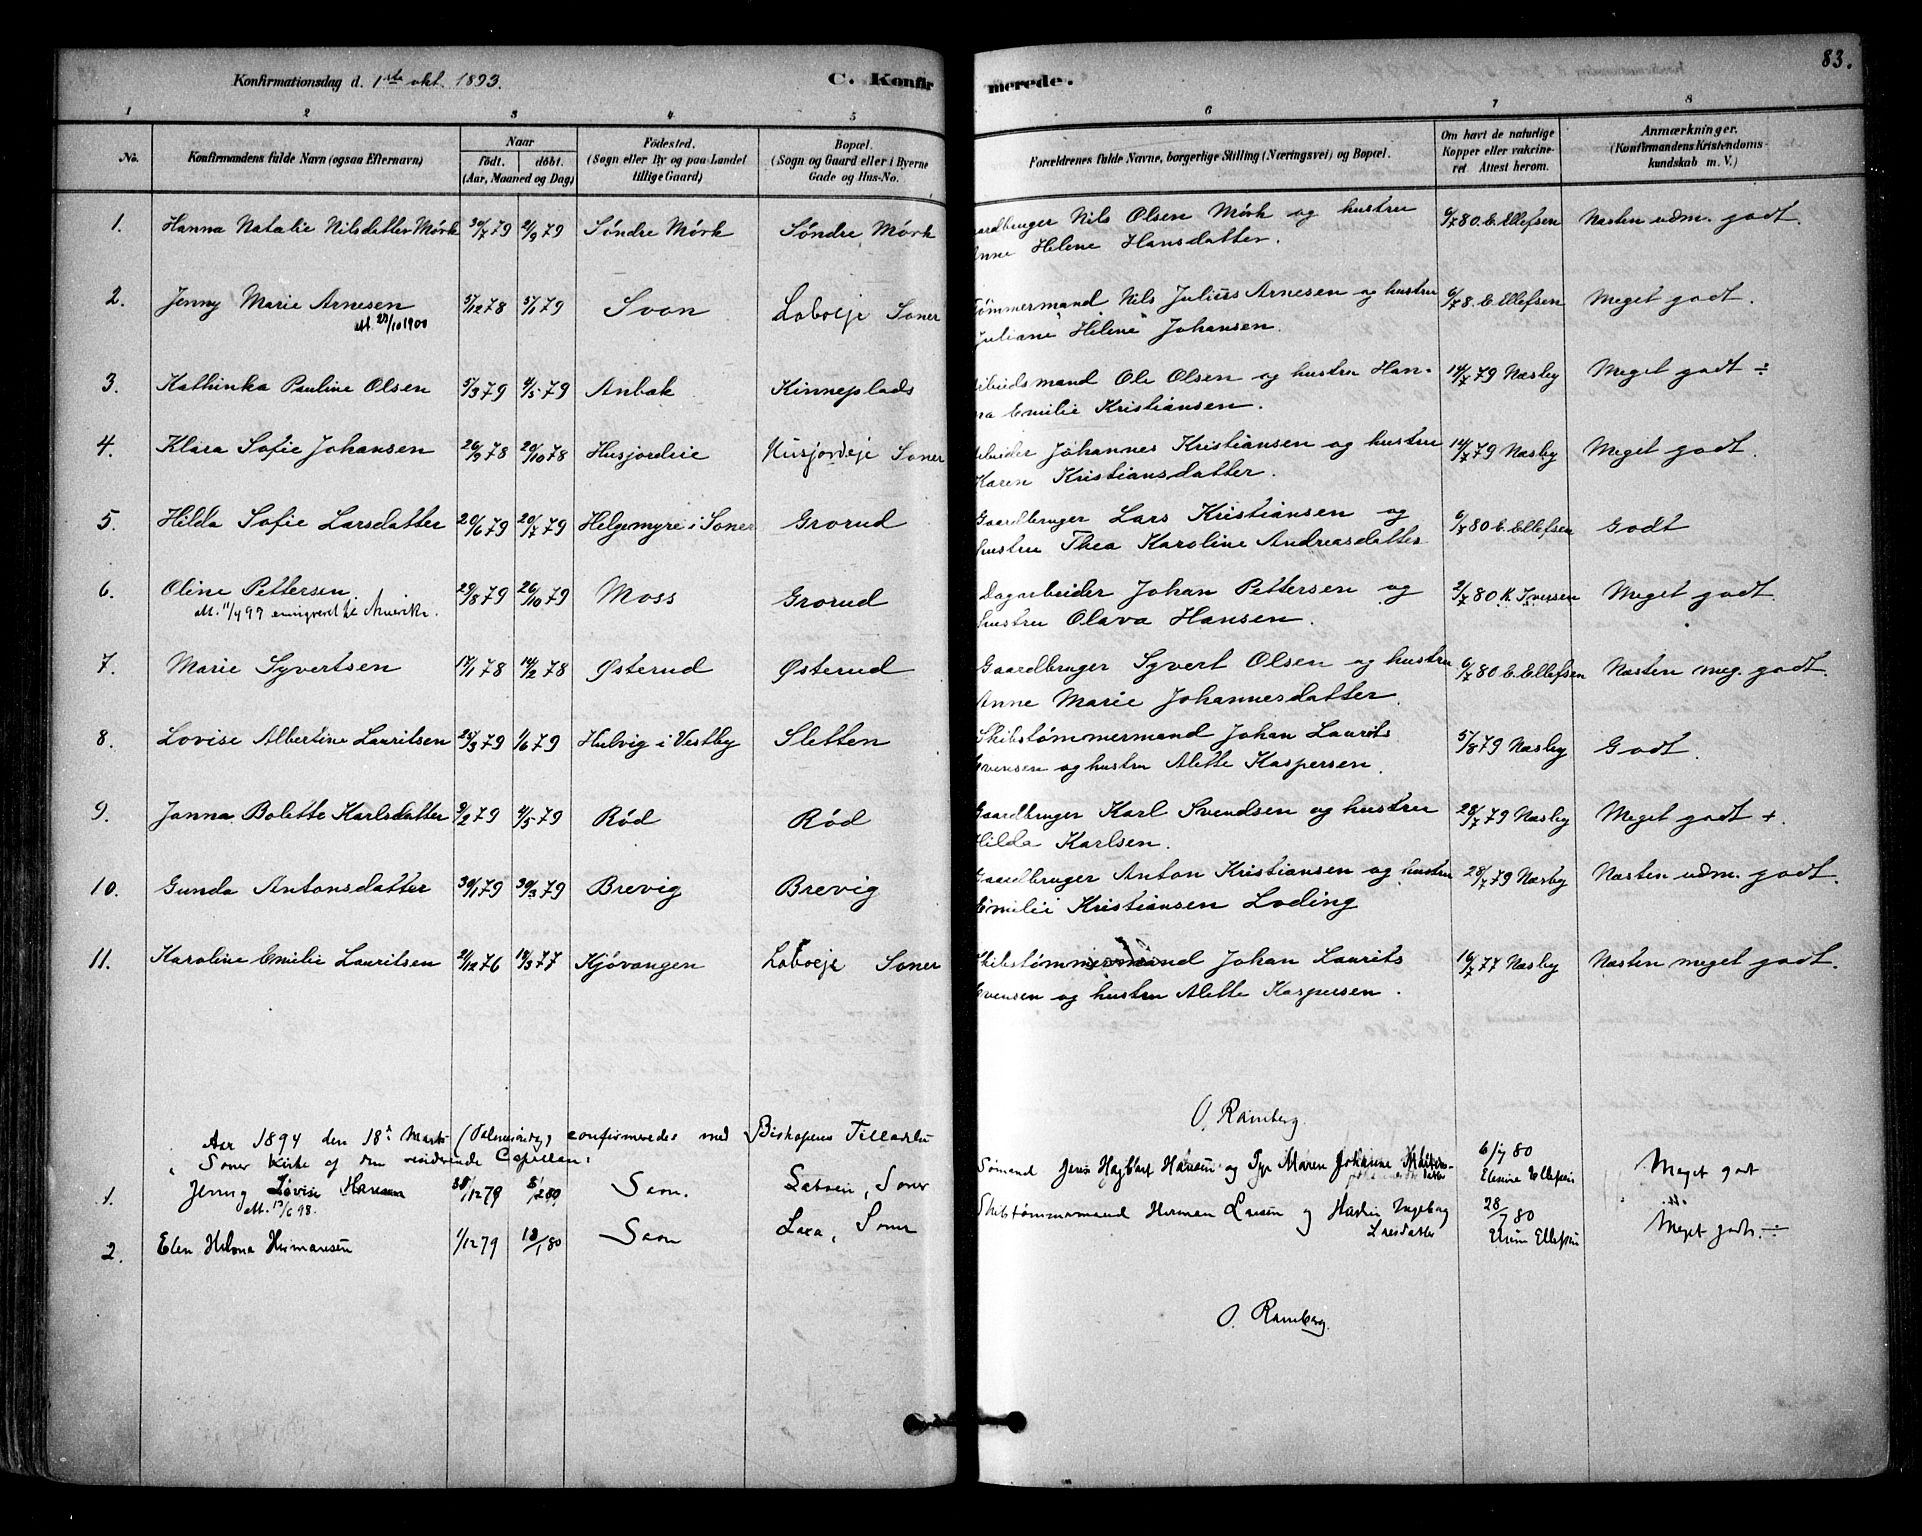 83.
Konfirmationsdag d. 1ste okt. 1893.
C. Konfirmerede.
1 2 3 4 5 6 7 8
No. Konfirmandens fulde Navn (ogsaa Efternavn) Naar født. døbt. (Aar, Maaned og Dag) Fødested. (Sogn eller By og paa Landet tillige Gaard) Bopæl. (Sogn og Gaard eller i Byerne Gade og Hus-No. Forældrenes fulde Navne, borgerlige Stilling (Næringsvei) og Bopæl. Om havt de naturlige Kopper eller vakcineret. Attest herom. Anmærkninger. (Konfirmandens Kristendomskundskab m. V.)
1. Hanna Natalie Nilsdatter Mørk 30/7 79 2/9 79 Søndre Mørk Søndre Mørk Gaardbruger Nils Olsen Mørk og hustru 6/7 80. E. Ellefsen Næsten udm. godt.
Anne Helene Hansdatter.
2. Jenny Marie Arnesen 5/12 78 5/1 79 Svon Laboeje Soner Tømmermand Nils Julius Arnesen og hustru 6/7 8. E. Ellefsen Meget godt.
att. 23/10 1900 Juliane "Hilene" Johansen.
3. Kathinka Pauline Olsen 5/3 79 4/5 79 Anbak Kinneplads Arbeidsmand Ole Olsen og hustru Han- 14/7 79 Næsby Meget godt ÷
na Emilie Kristiansen.
4. Klara Sofie Johansen 20/9 78 20/10 78 Husjordeie Husjordeje Soner Arbeider Johannes Kristiansen og hustru 14/7 79 Næsby Meget godt.
Karen Kristiansdatter.
5. Hilda Sofie Larsdatter 20/6 79 20/7 79 Helgemyre i Soner Grorud Gaardbruger Lars Kristiansen og 6/7 80 E. Ellefsen Godt
hustru Thea Karoline Andreasdatter
6. Oline Pettersen. 29/8 79 26/10 79 Moss Grorud Dagarbeider Johan Pettersen og 2/7 80 K. Iversen Meget godt.
att. 11/4 97 emigreret til Amerika. hustru Olava Hansen.
7. Marie Syvertsen 17/1 78 14/2 78 Østerud Østerud Gaardbruger Syvert Olsen og hustru 6/7 80 E. Ellefsen Næsten meg. godt.
Anne Marie Johannesdatter
8. Lovise Albertine Lauritsen 23/3 79 1/6 79 Hulvig i Vestby Sletten Skibstømmermand Johan Laurits 5/8 79 Næsby Godt.
Evensen og hustru Alette Kaspersen.
9. Janna Bolette Karlsdatter 9/2 79 4/5 79 Rød Rød Gaardbruger Karl Svendsen og hustru 28/7 79 Næsby Meget godt +.
Hilda Karlsen.
10. Gunda Antonsdatter 30/1 79 30/3 79 Brevig Brevig Gaardbruger Anton Kristiansen og hustru 28/7 79 Næsby Næsten udm. godt.
Emilie Kristiansen Loding
11. Karoline Emilie Lauritsen 21/12 76 18/3 77 Kjøvangen Laboeje Soner Skibstømmermand Johan Laurits 16/7 77 Næsby Næsten meget godt.
Evensen og hustru Alette Kaspersen.
O. Ramberg.
Aar 1894 den 18de Marts (Palmesøndag) confirmeredes med Biskopens Tilladelse
i Soner Kirke af den residerende Capellan:
1. Jenny Lovise Hansen 31/12 79 8/2 80 Saan. Soner Sømand Jens Hansen og Maren Johanne 6/7 80 Meget godt
att. 12/6 98. Elesine Ellefsen
2. Elen Helena Hermansen 1/12 79 18/1 80 Saan Lara, Soner Skibstømmermand Herman Larsen og Hustru Ingeborg 28/7 80 Meget godt. ÷
Larsdatter Elesine Ellefsen
O. Ramberg.